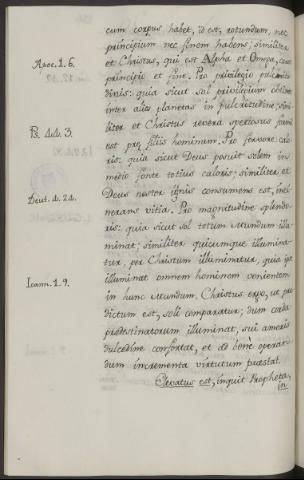 cum corpus habet, id est, rotundum, nec
principium nec finem habens; similiter
et Christus, qui est Alpha et Omega,
Apoc. 1. 6.
principio et fine. Pro privilegio pulcritu
dinis: quia sicut sol privilegium obtinet
inter alia planetas in pulcritudine; simi
liter et Christus revera speciosus formâ
est præ filiis hominum. Pro fervore calo
Ps.
3.
ris: quia sicut Deus posuit solem in
medio fonte totius caloris; similiter et
Deus noster ignis consumens est, inci
Deut.
24.
nerans vitia. Pro magnitudine splendo
ris: quia sicut sol totum Mundum illu
minat; similiter quicumque illumina
tur, per Christum illuminatur, quia ipse
illuminat omnem hominem venientem
Ioann. 1. 9.
in hunc Mundum. Christus ergo, ut præ
dictum est, soli comparatur; dum corda
prædestinatorum illuminat, sui amoris
dulcedine confortat, et ad bonè operan
dum incrementa virtutum præstat.
Elevatus est, inquit Propheta,
in